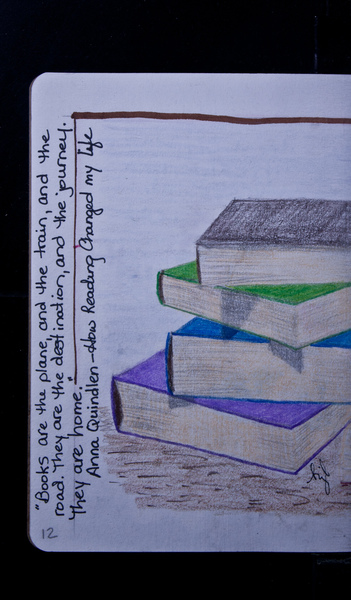 "Books are the plane, and the train, and the
road. They are the destination, and the journey.
They are home."
Anna Quindlen - How Reading Changed my Life
12